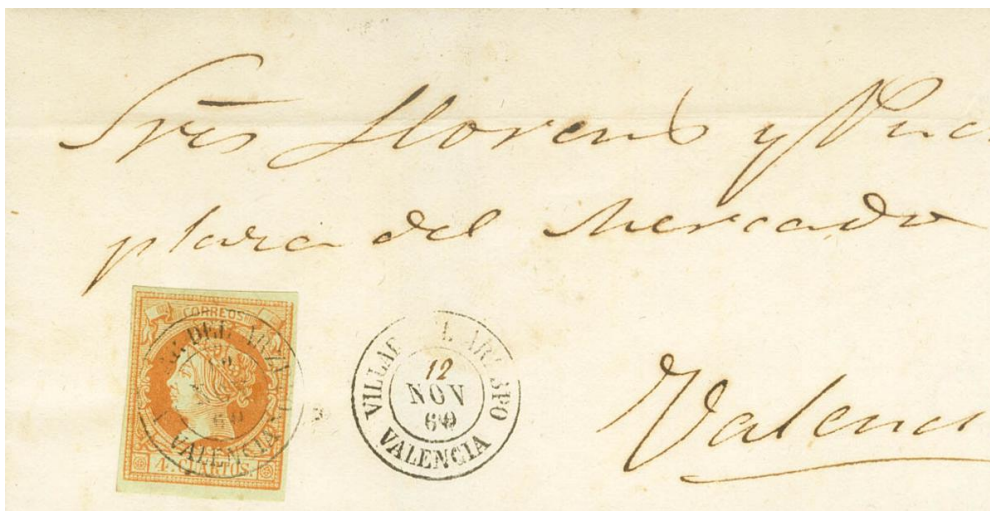 Sres Llorens y
plaza del Mercado
CORREOS
DEL ARZ
60
VALENCIA
4 CUARTOS
VILLA L ARZ SPO
12
NOV
60
VALENCIA
Valenci